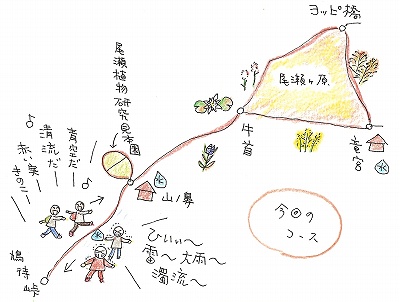 ヨッピ橋
尾瀬ヶ原
尾瀬植物研究見本園
牛首
竜宮
水
水
山ノ鼻
♪青空だ
清流だ♪
赤い実
きのこ
水
ひいぃ〜
雷〜大雨〜
濁流〜
鳩待峠
今回の
コース